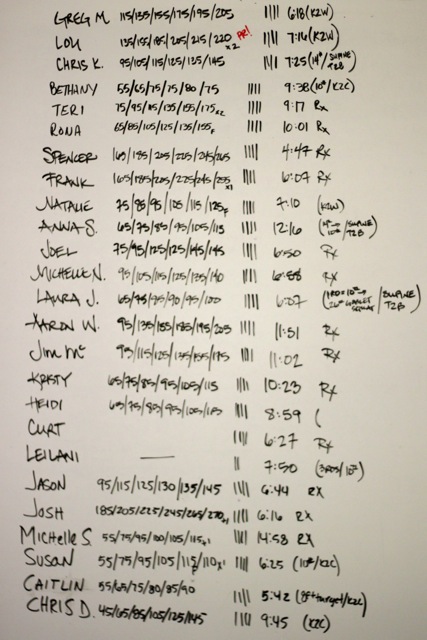 GREG M. 115/135/155/175/195/205 |||| 6:18 (K2W)
LOU 135/155/185/205/215/220 x2 PR! |||| 7:16 (K2W)
CHRIS K. 95/105/115/125/135/145 |||| 7:25 (14#/SUPINE T2B)
BETHANY 55/65/75/75/80/75 |||| 9:38 (10#/K2C)
TERI 75/95/115/135/155/175 x2 |||| 9:17 Rx
RONA 65/85/105/125/135/155 F |||| 10:01 Rx
SPENCER 165/185/205/225/245/265 |||| 4:47 Rx
FRANK 165/185/205/225/245/255 x1 |||| 6:07 Rx
NATALIE 75/85/95/105/115/125 F |||| 7:10 (K2W)
ANNA S. 65/75/85/95/105/115 |||| 12:16 /SUPINE T2B)
JOEL 75/95/125/125/145/145 |||| 6:50 Rx
MICHELLE N. 95/105/115/125/135/140 |||| 6:58 Rx
LAURA J. 65/75/75/90/95/100 |||| 6:07 GOBLET SQUAT /SUPINE T2B)
AARON W. 95/135/155/185/195/205 |||| 11:51 Rx
Jim Mc 95/115/125/135/155/175 |||| 11:02 Rx
KRISTY 65/75/85/95/105/115 |||| 10:23 Rx
HEIDI 65/75/85/95/105/115 |||| 8:59 (
CURT |||| 6:27 Rx
LEILANI — || 7:50 (3RDS/10#)
JASON 95/115/125/130/135/145 |||| 6:44 RX
JOSH 185/205/225/245/265/270 |||| 6:16 RX
Michelle S. 55/75/95/100/105/115 x1 |||| 14:58 RX
SUSAN 55/75/95/105/115/110 x1 |||| 6:25 (10#/K2C)
CAITLIN 55/65/75/80/85/90 |||| 5:42 target/K2C)
CHRIS D. 45/65/85/105/125/145 |||| 9:45 (K2C)